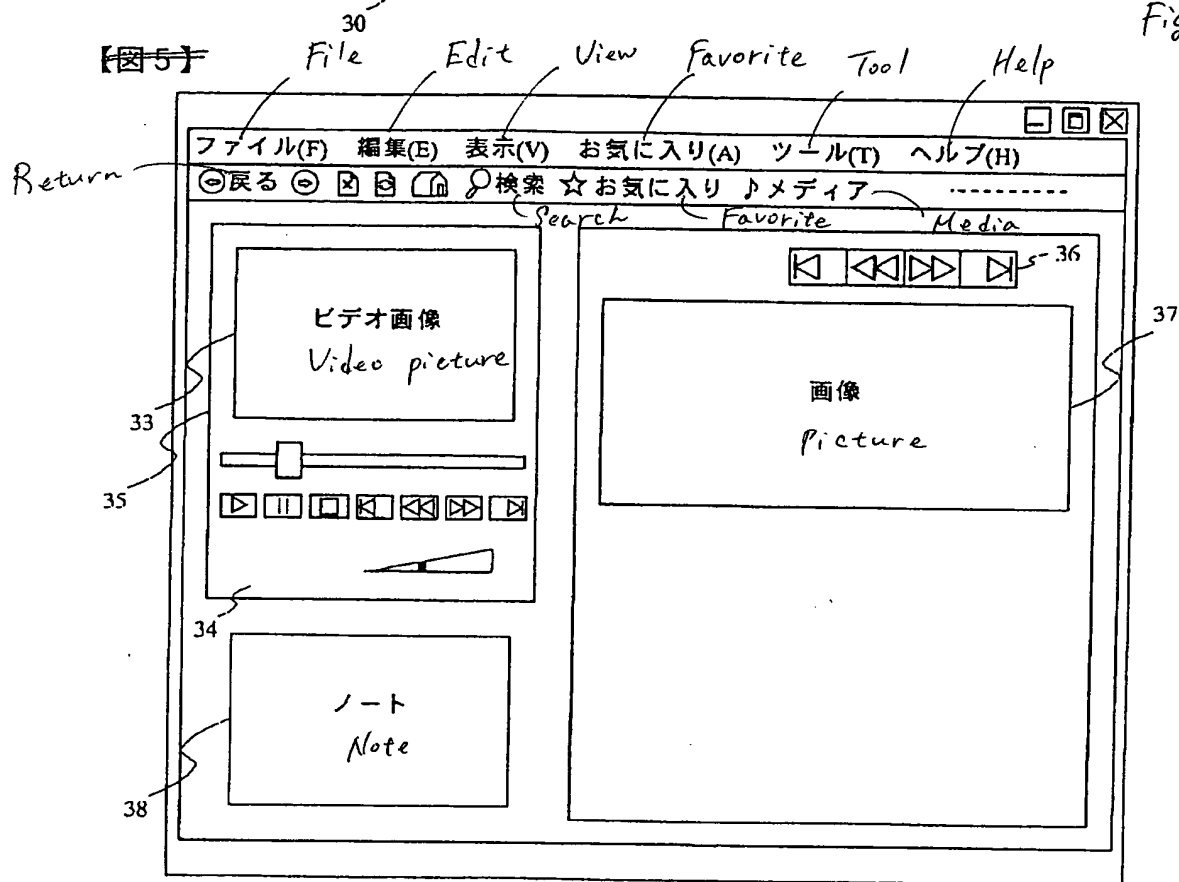 30
Fig
【図5】
File Edit View Favorite Tool Help
ファイル(F) 編集(E) 表示(V) お気に入り(A) ツール(T) ヘルプ(H)
Return
戻る 検索 ☆お気に入り ♪メディア
Search Favorite Media
36
ビデオ画像
Video picture
37
画像
Picture
33
35
34
ノート
Note
38